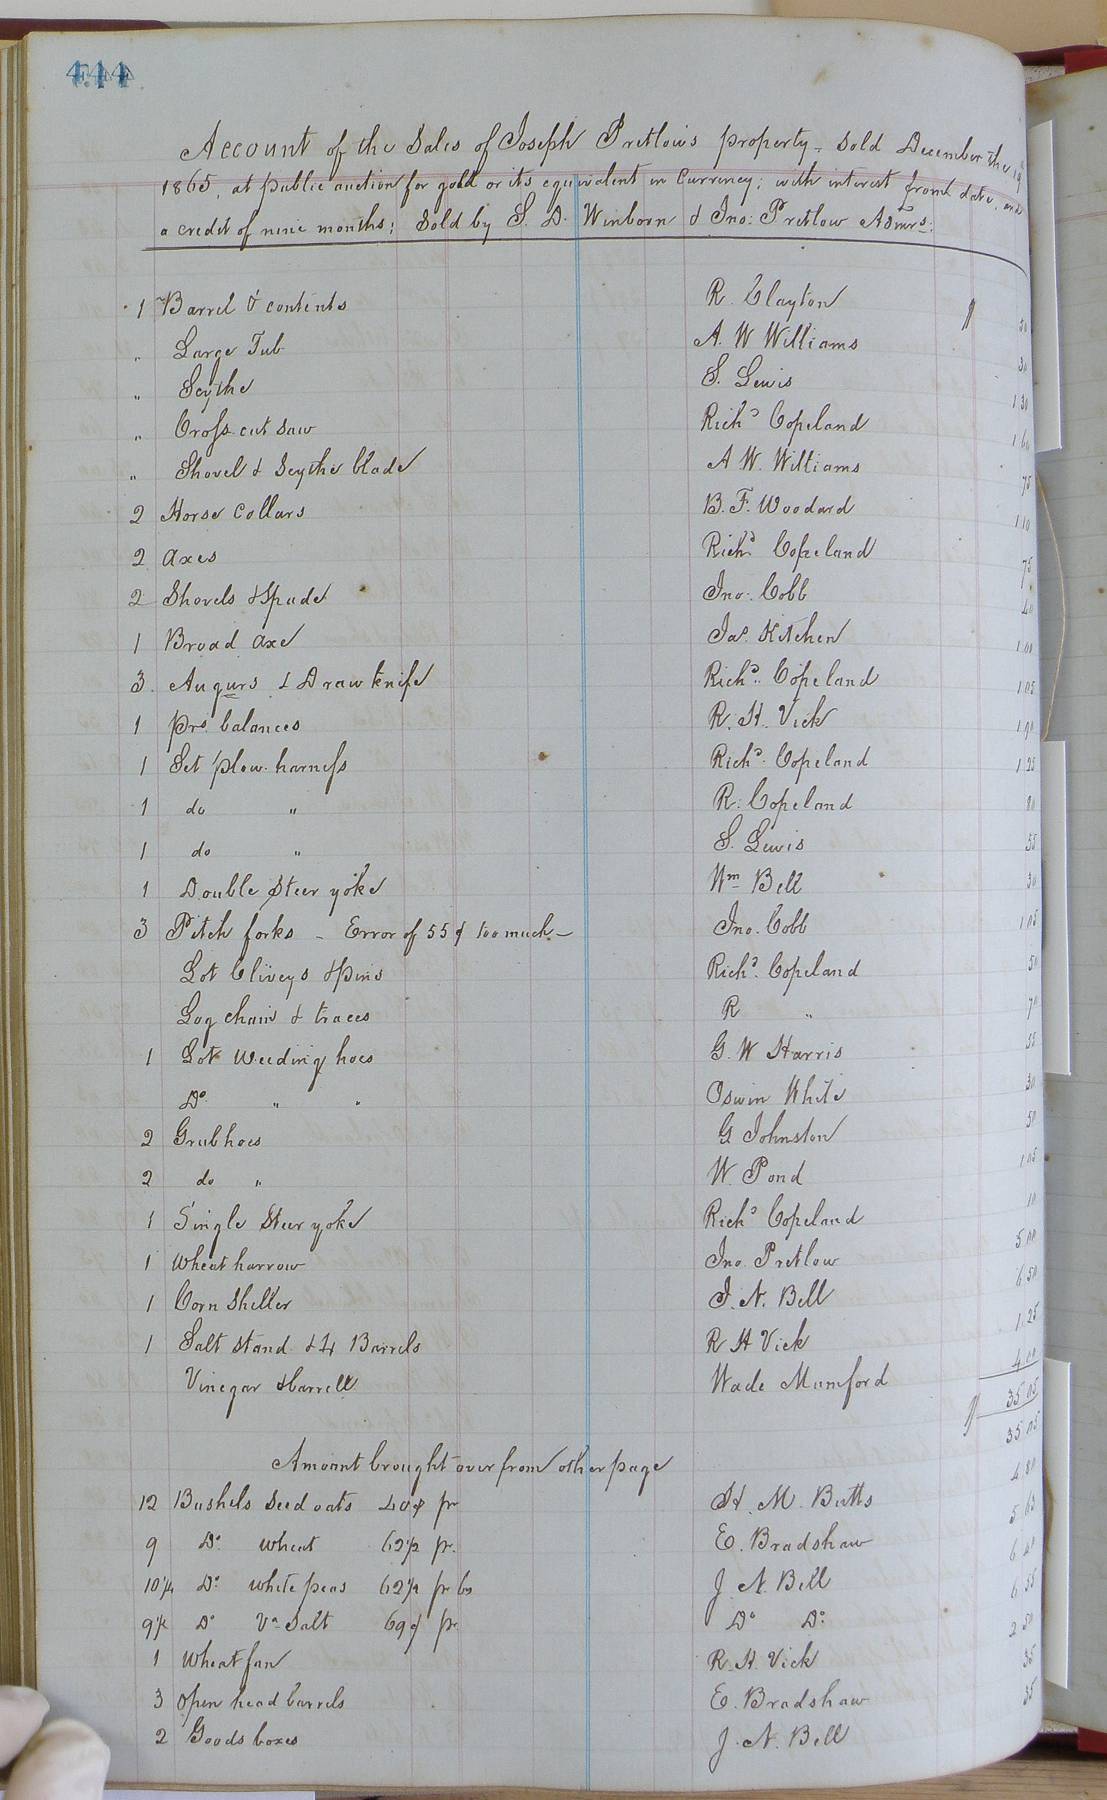 444
Account of the Sales of Joseph Pretlow's property - Sold December the 19
1865, at public auction for gold or its equivalent in Currency; with interest from date, and
a credit of nine months; Sold by S. D. Winborn & Jno: Pretlow Admrs:
1 Barrel & contents R. Clayton $ 50
" Large Tub A. W Williams 30
" Scythe S. Lewis 1 30
" Cross cut saw Richd Copeland 1 60
" Shovel & Scythe blade A W. Williams 75
2 Horse Collars B. F. Woodard 1 10
2 Axes Richd Copeland 75
2 Shovels & Spade Jno. Cobb 40
1 Broad axe Jas Kitchen 1 00
3 Augurs & Draw knife Richd Copeland 1 05
1 prs balances R. H. Vick 1 90
1 Set plow harness Richd Copeland 1 25
1 do " R. Copeland 80
1 do " S. Lewis 55
1 Double Steer yoke Wm Bell 30
3 Pitch forks - Error of 55¢ too much - Jno. Cobb 1 05
Lot Cliveys & pins Richd Copeland 50
Log chain & traces R " 70
1 Lot Weeding hoes G. W Harris 55
Do " " Oswin White 30
2 Grubhoes G Johnston 50
2 do " W. Pond 1 05
1 Single Steer yoke Richd Copeland 10
1 Wheat harrow Jno. Pretlow 5 00
1 Corn Sheller J. N. Bell 6 50
1 Salt stand & 4 Barrels R H Vick 1 25
Vinegar & barrell Wade Mumford 4 00
$ 35 05
Amount brought over from other page 35 05
12 Bushels Seed oats 40¢ pr H. M. Butts 4 80
9 Do wheat 62½ pr. E. Bradshaw 5 63
10¼ Do white peas 62½ pr bs J. N. Bell 6 41
9½ Do Va Salt 69¢ pr Do Do 6 55
1 Wheat fan R. H. Vick 2 50
3 Open head barrels E. Bradshaw 35
2 Goods boxes J. N. Bell 35